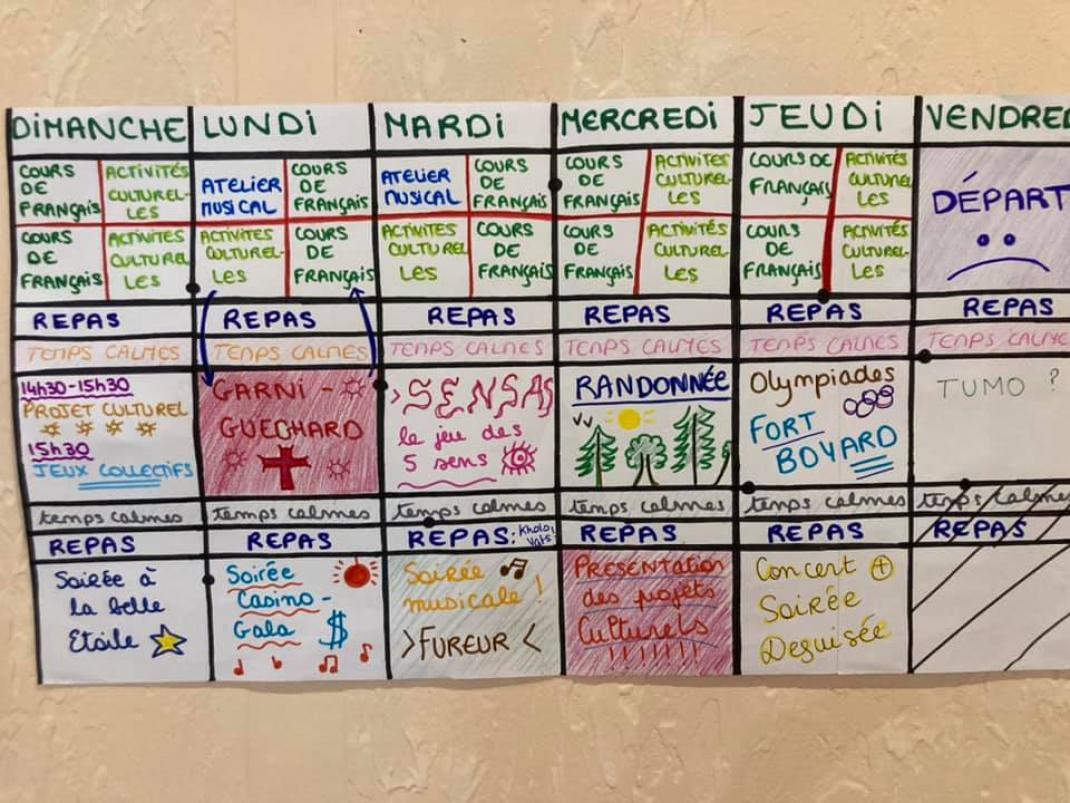 DIMANCHE
LUNDI
MARDI
MERCREDI
JEUDI
VENDRED
COURS
DE
FRANÇAIS
ACTIVITÉS
CULTUREL-
LES
ATELIER
MUSICAL
COURS
DE
FRANÇAIS
ATELIER
MUSICAL
COURS
DE
FRANÇAIS
COURS
DE
FRANÇAIS
ACTIVITES
CULTUREL-
LES
COURS DE
FRANÇAIS
ACTIVITÉS
CULTUREL-
LES
DÉPART
COURS
DE
FRANÇAIS
ACTIVITES
CULTUREL
LES
ACTIVITES
CULTUREL-
LES
COURS
DE
FRANÇAIS
ACTIVITÉS
CULTUREL
LES
COURS
DE
FRANÇAIS
COURS
DE
FRANÇAIS
ACTIVITÉS
CULTUREL-
LES
COURS
DE
FRANÇAIS
ACTIVITÉS
CULTUREL-
LES
REPAS
REPAS
REPAS
REPAS
REPAS
REPAS
TEMPS CALMES
TEMPS CALMES
TEMPS CALMES
TEMPS CALMES
TEMPS CALMES
TEMPS CALME
14h30-15h30
PROJET CULTUREL
15h30
JEUX COLLECTIFS
GARNI -
GUEGHARD
>SENSAS
le jeu des
5 sens
RANDONNÉE
Olympiades
FORT
BOYARD
TUMO ?
temps calmes
temps calmes
temps calmes
temps calmes
temps calmes
temps calmes
REPAS
REPAS
REPAS:
REPAS
REPAS
REPAS
Soirée à
la belle
Etoile
Soirée
Casino -
Gala
$
Soirée
musicale !
>FUREUR<
PRESENTATION
des projets
Culturels
!!!!!!!
Concert +
Soirée
Deguisée